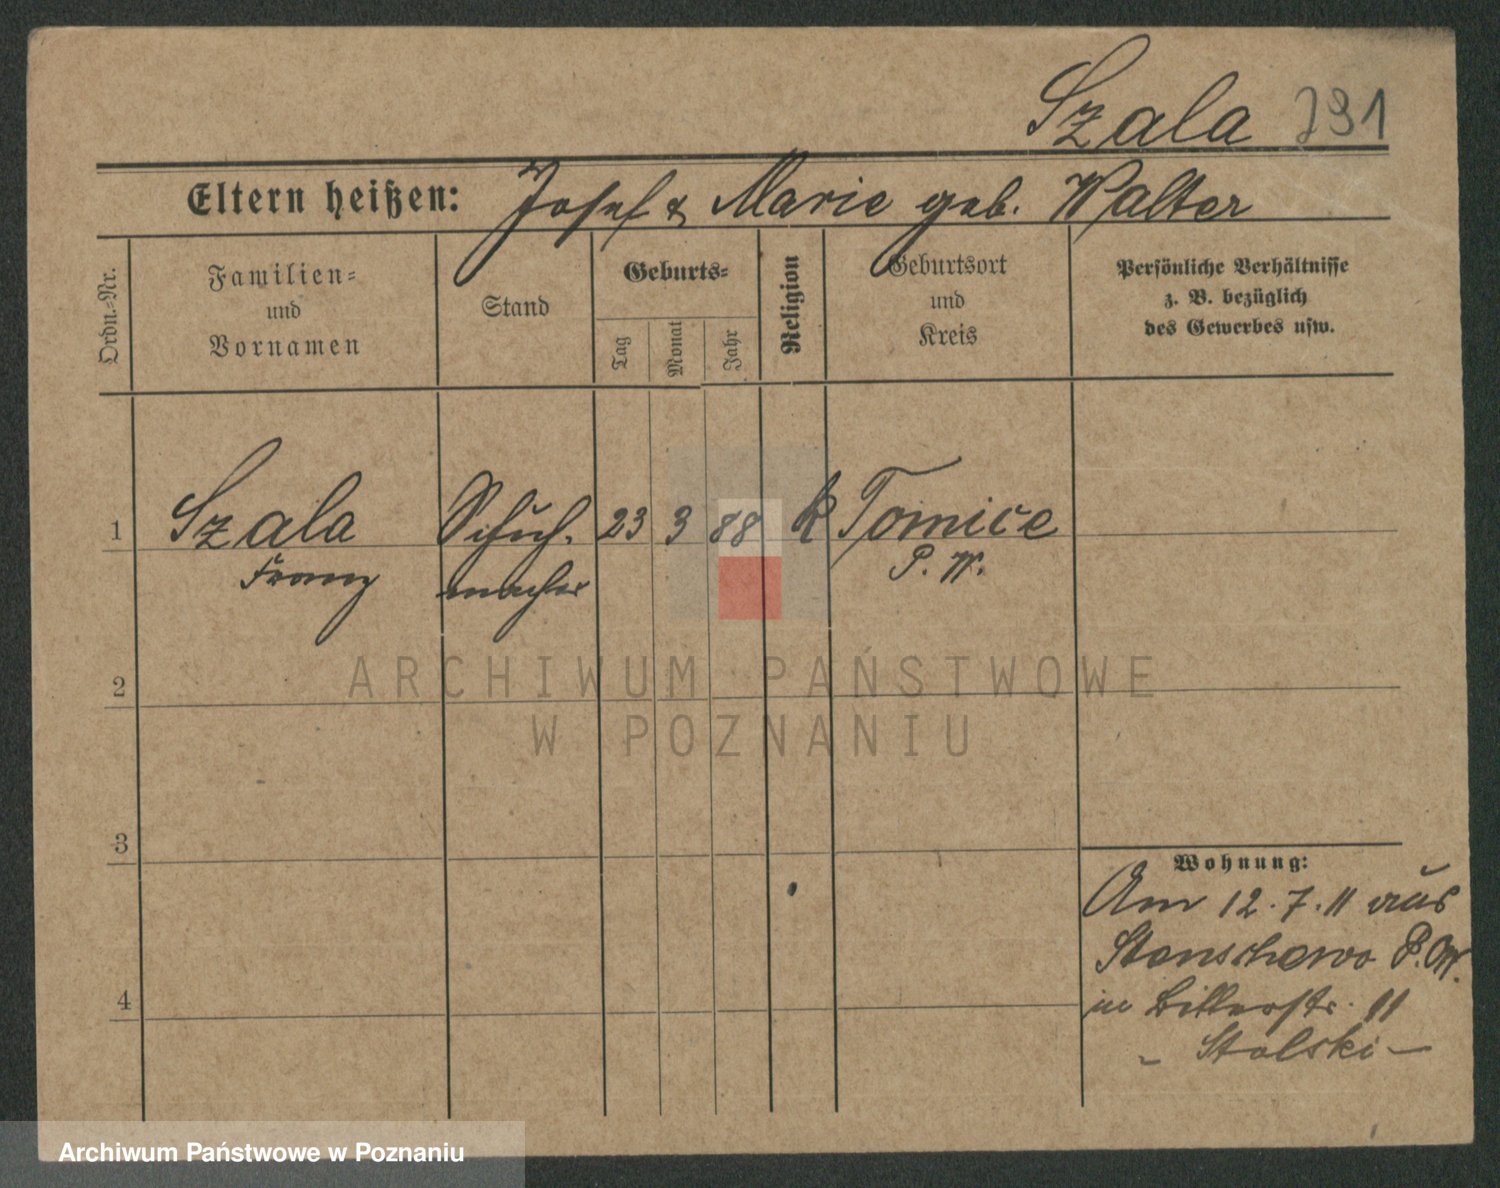 Szala 791
Eltern heißen: Josef & Marie geb. Walter
Ordn.-Nr.
Familien-
und
Vornamen
Stand
Geburts-
Tag
Monat
Jahr
Religion
Geburtsort
und
Kreis
Persönliche Verhältnisse
z. B. bezüglich
des Gewerbes usw.
1 Szala Schuh- 23 3 88 k Tomice
Franz macher P. W.
2
3
4
Wohnung:
Am 12.7.11 aus
P. W.
in Bitterstr. 11
- Stolski -
ARCHIWUM PAŃSTWOWE
W POZNANIU
Archiwum Państwowe w Poznaniu